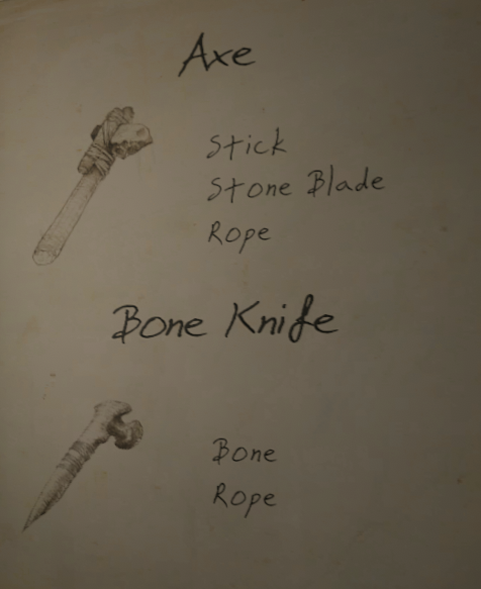 Axe
Stick
Stone Blade
Rope
Bone Knife
Bone
Rope